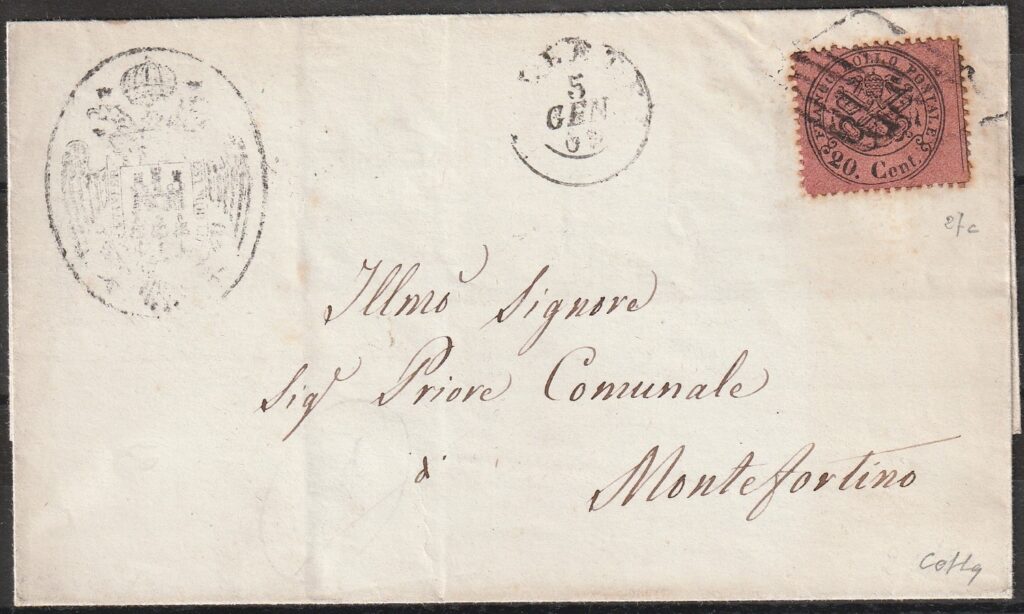 5
GEN
FRANCO BOLLO POSTALE
20. Cent.
27c
Illmo Signore
Sigr Priore Comunale
a
Montefortino